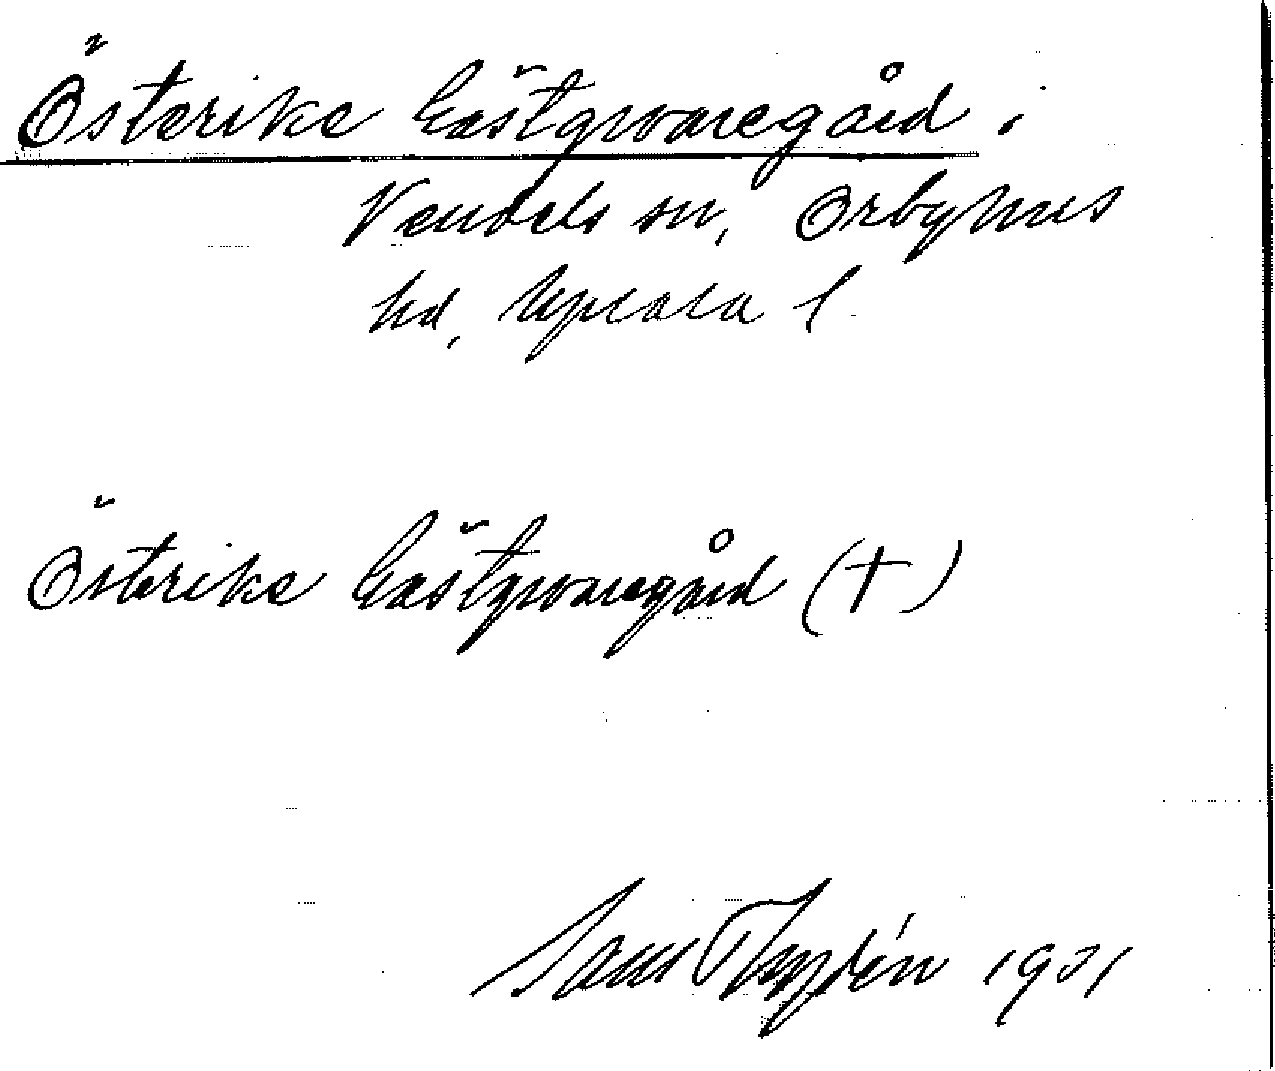 Österike Gästgivaregård i
Vendels sn, Örbyhus
hd, Upsala l
Österike Gästgivaregård (†)